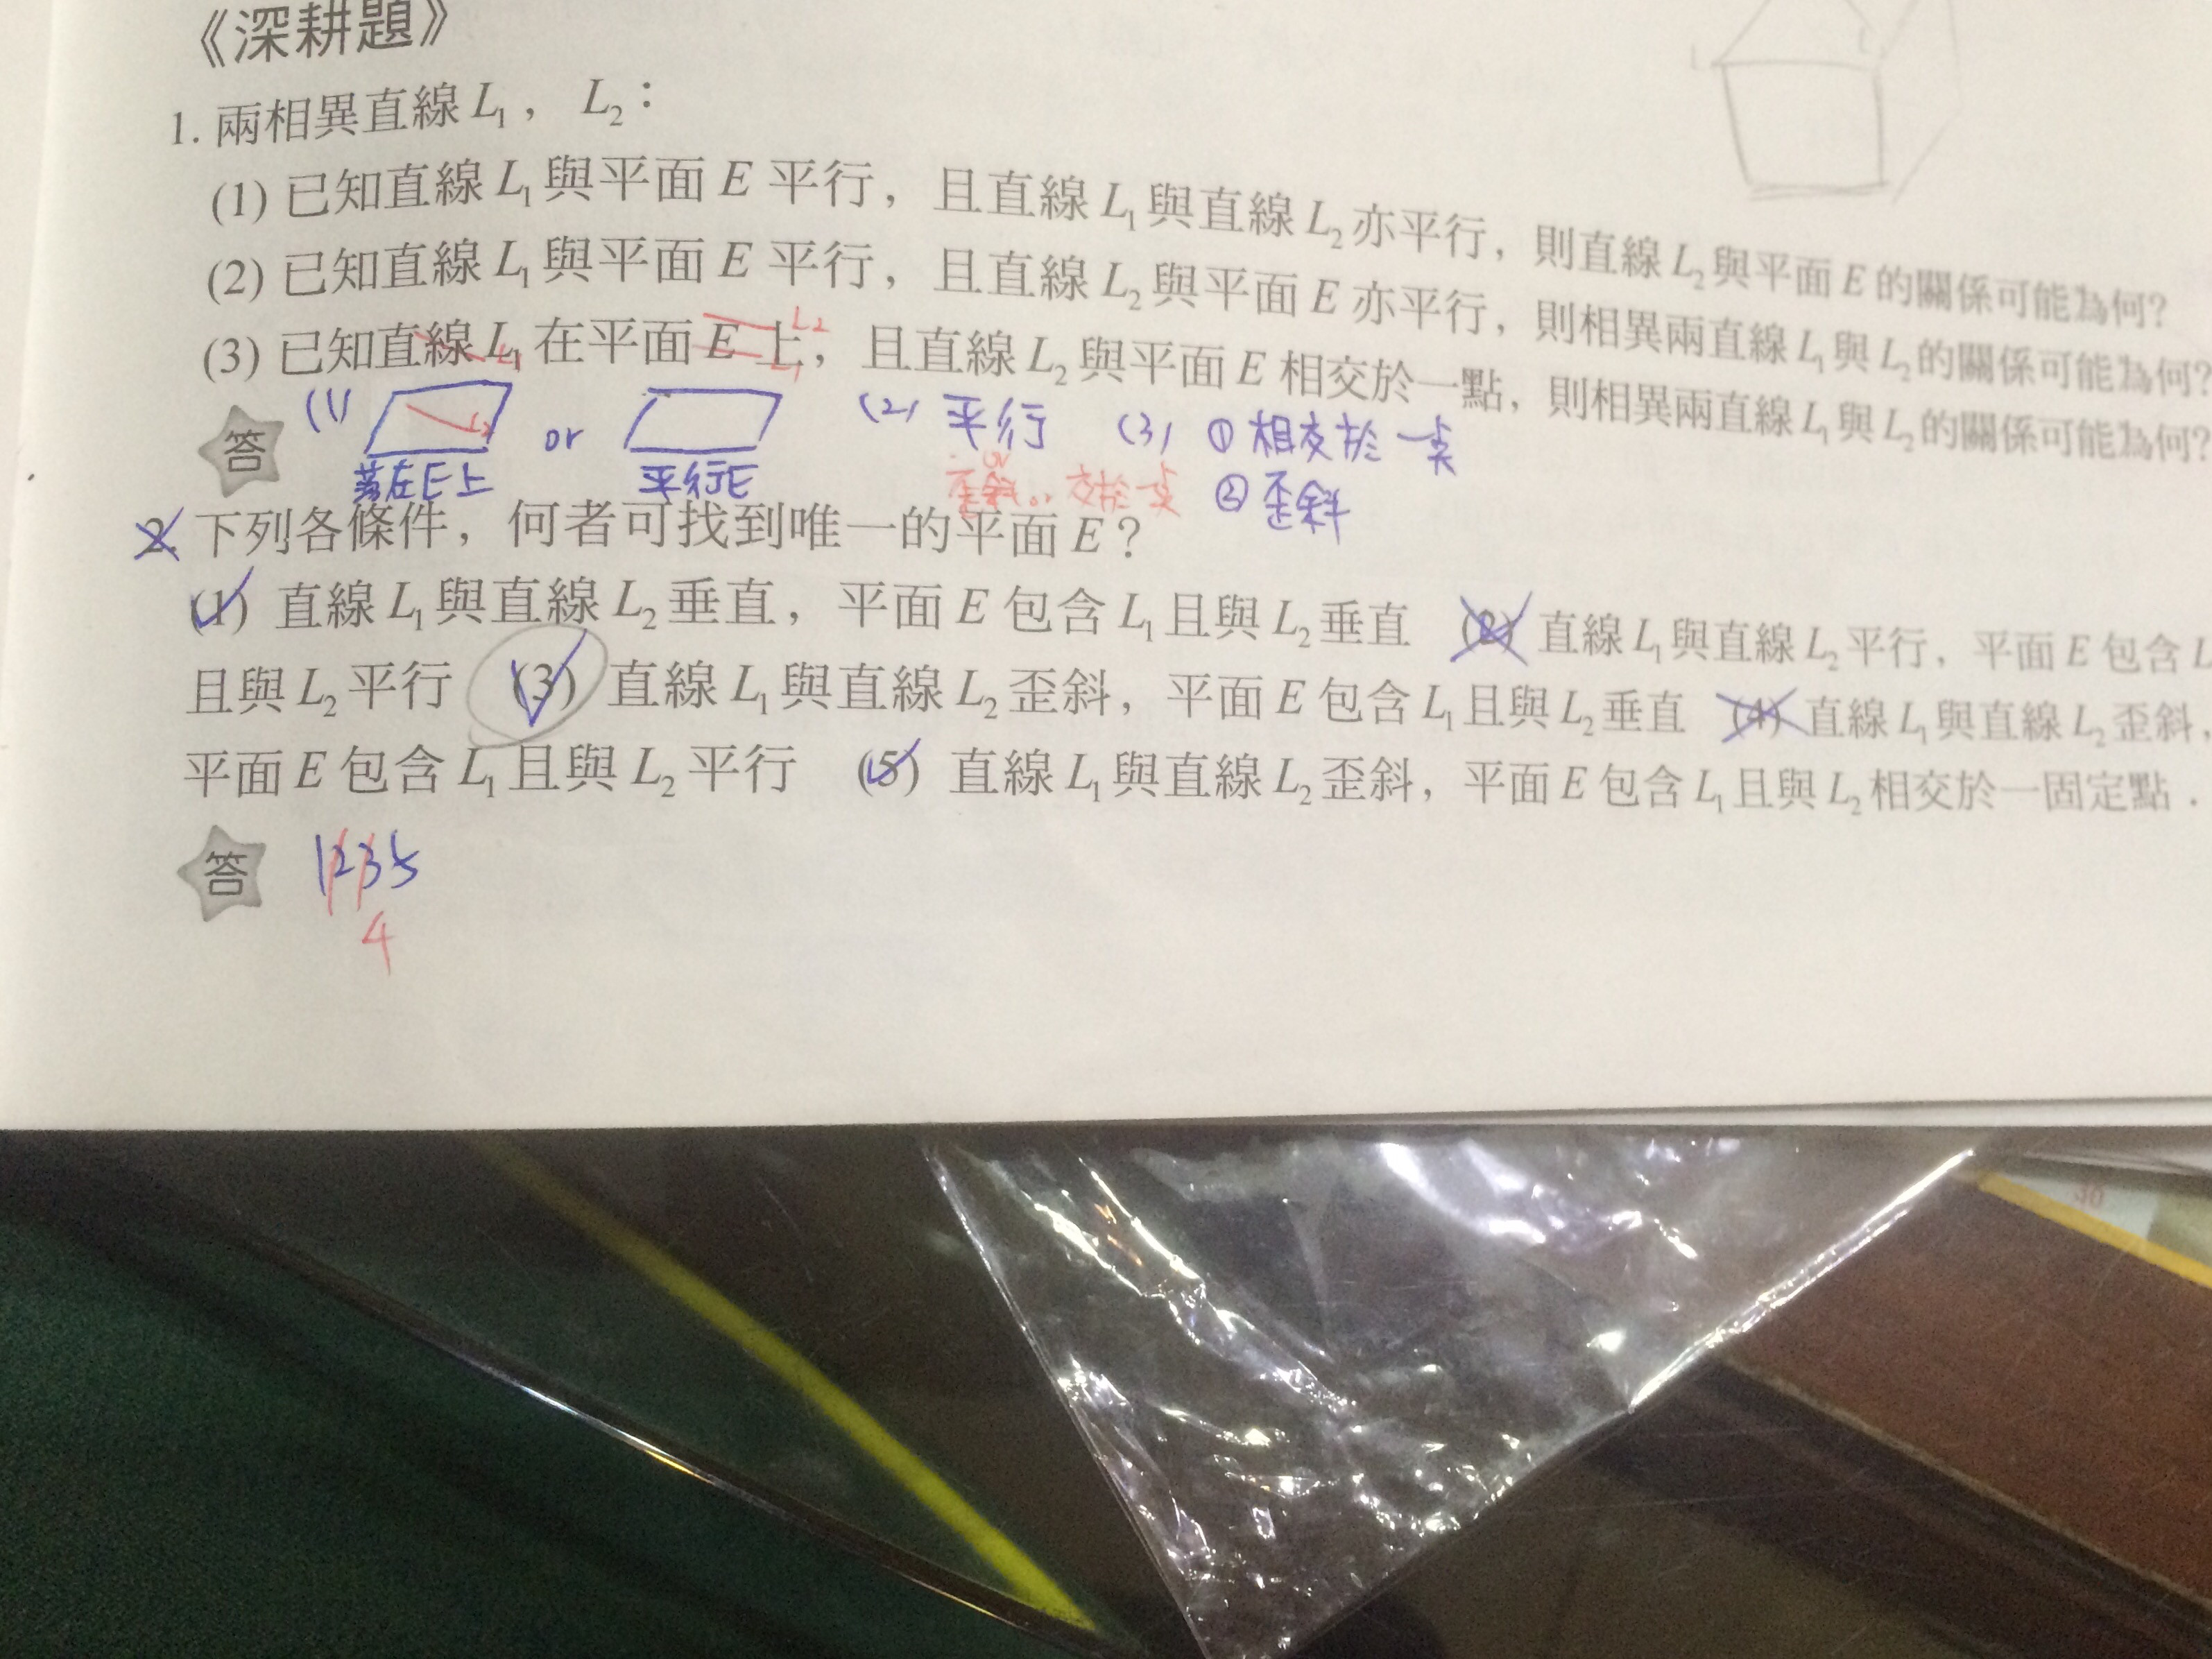 《深耕題》
1. 兩相異直線 L₁， L₂：
(1) 已知直線 L₁ 與平面 E 平行，且直線 L₁ 與直線 L₂ 亦平行，則直線 L₂ 與平面 E 的關係可能為何？
(2) 已知直線 L₁ 與平面 E 平行，且直線 L₂ 與平面 E 亦平行，則相異兩直線 L₁ 與 L₂ 的關係可能為何？
(3) 已知直線 L₁ 在平面 E 上，且直線 L₂ 與平面 E 相交於一點，則相異兩直線 L₁ 與 L₂ 的關係可能為何？
L₁ L₂ L₁
答 (1) L₂ or (2) 平行 (3) ① 相交於一点
落在E上 平行E or 歪斜 or 交於一点 ② 歪斜
2. 下列各條件，何者可找到唯一的平面 E？
(1) 直線 L₁ 與直線 L₂ 垂直，平面 E 包含 L₁ 且與 L₂ 垂直 (2) 直線 L₁ 與直線 L₂ 平行，平面 E 包含 L
且與 L₂ 平行 (3) 直線 L₁ 與直線 L₂ 歪斜，平面 E 包含 L₁ 且與 L₂ 垂直 (4) 直線 L₁ 與直線 L₂ 歪斜，
平面 E 包含 L₁ 且與 L₂ 平行 (5) 直線 L₁ 與直線 L₂ 歪斜，平面 E 包含 L₁ 且與 L₂ 相交於一固定點．
答 1235
4